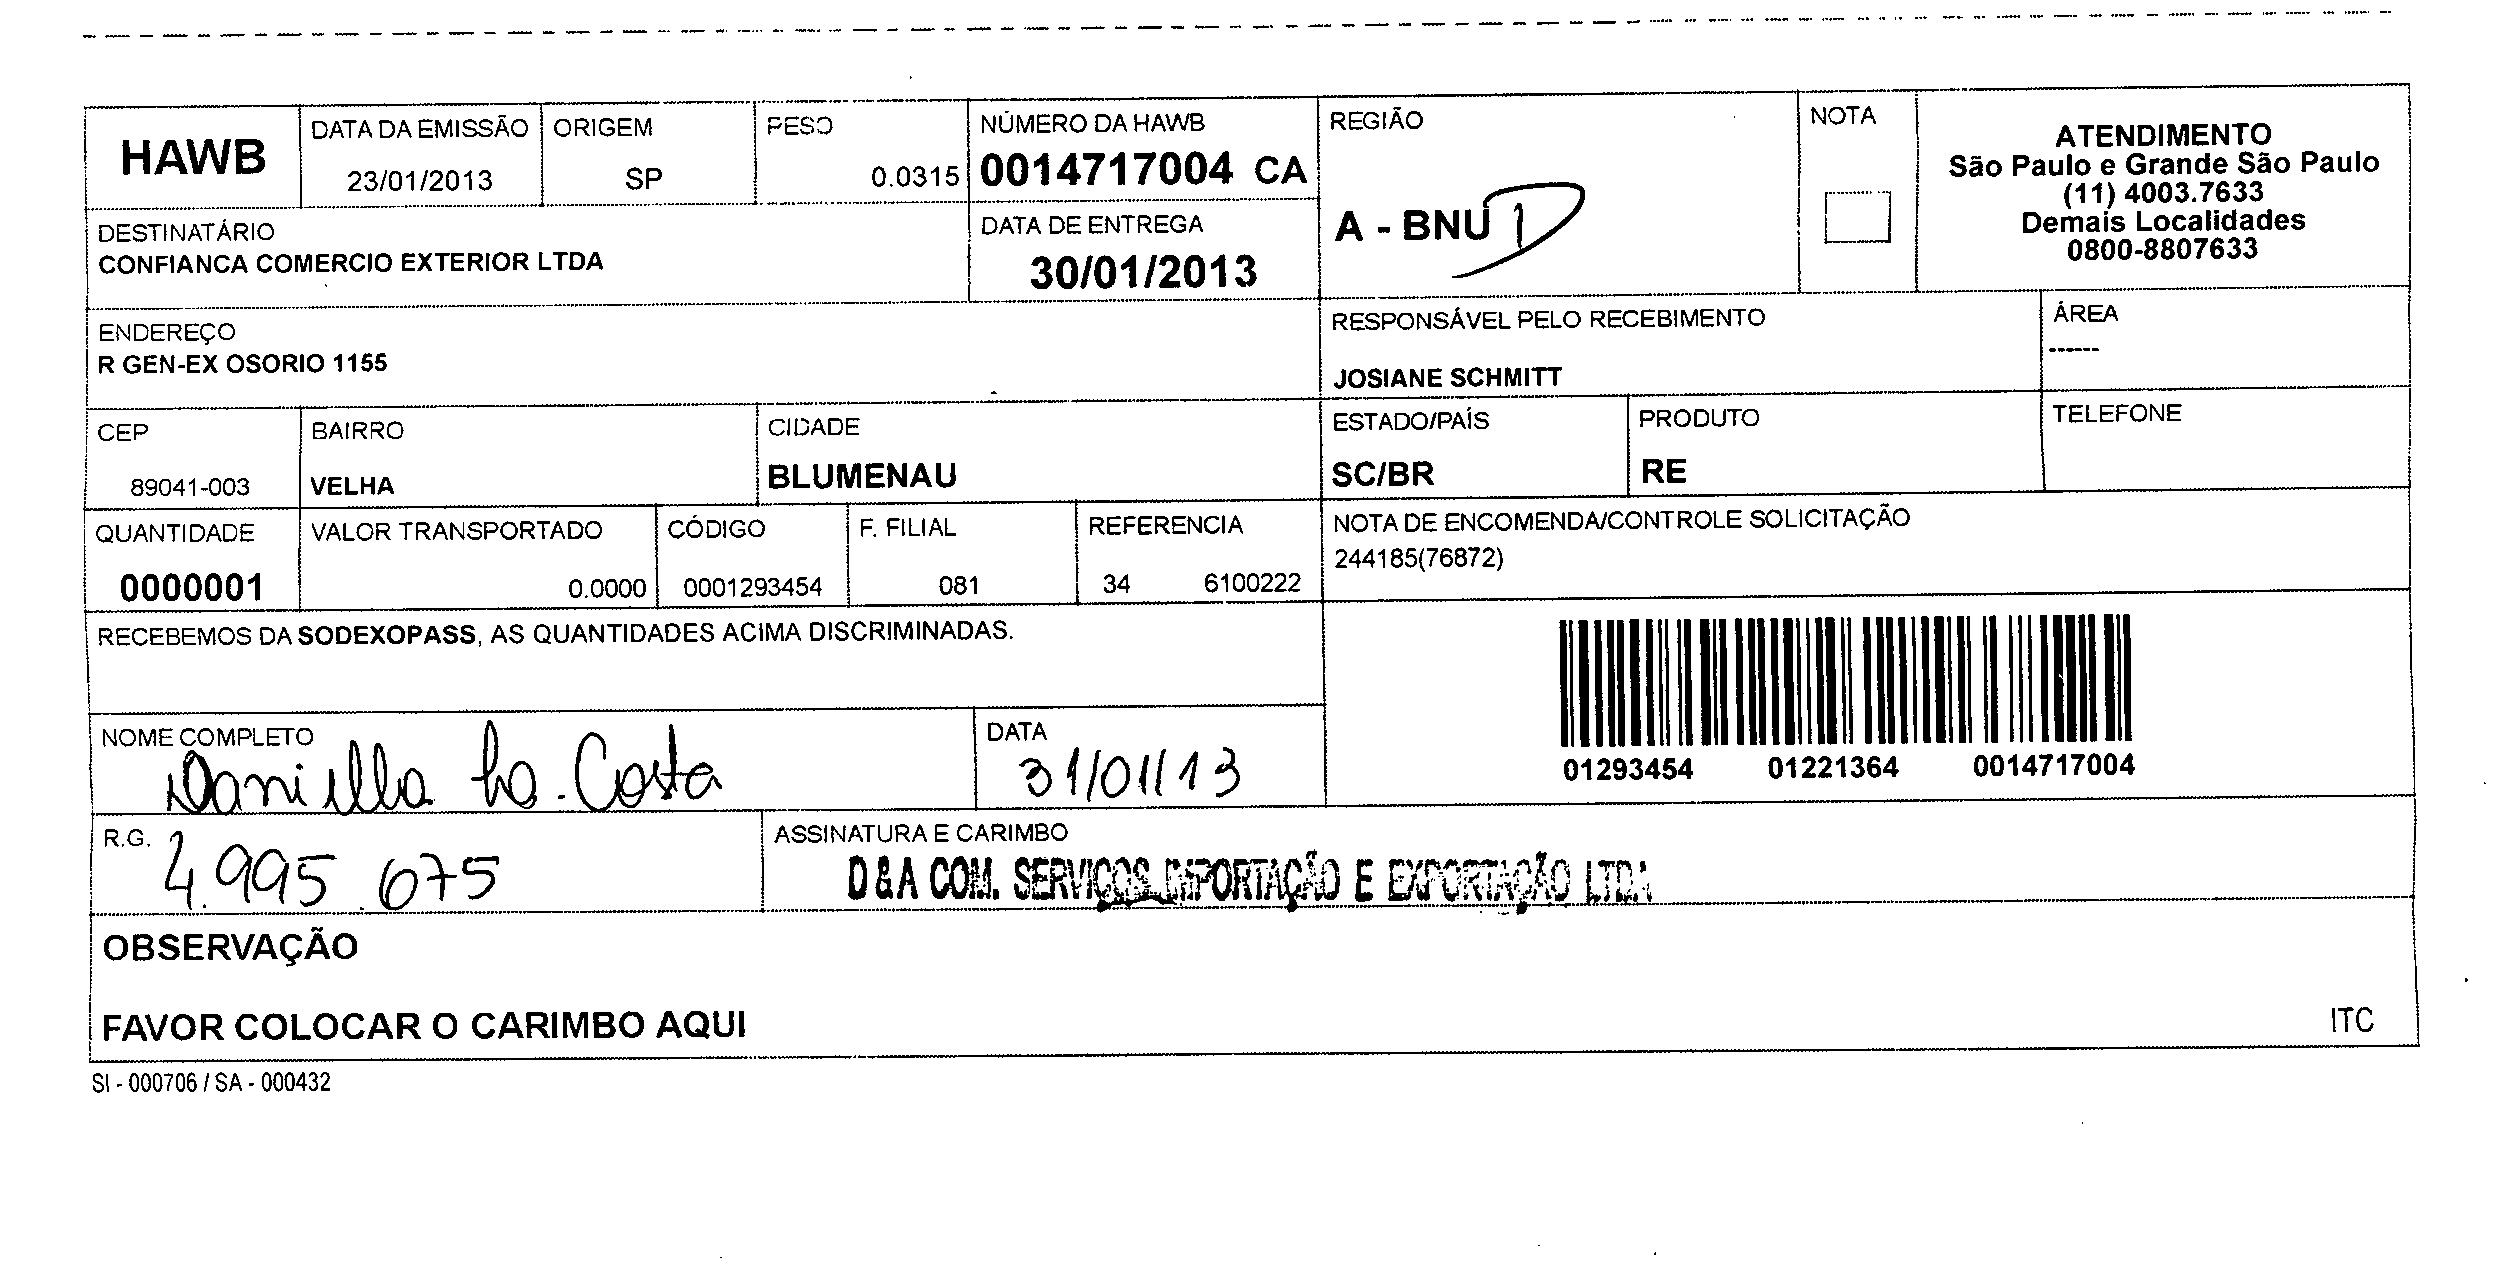 HAWB
DATA DA EMISSÃO
23/01/2013
ORIGEM
SP
PESO
0.0315
NÚMERO DA HAWB
0014717004 CA
REGIÃO
A - BNU
NOTA
ATENDIMENTO
São Paulo e Grande São Paulo
(11) 4003.7633
Demais Localidades
0800-8807633
DESTINATÁRIO
CONFIANCA COMERCIO EXTERIOR LTDA
DATA DE ENTREGA
30/01/2013
ENDEREÇO
R GEN-EX OSORIO 1155
RESPONSÁVEL PELO RECEBIMENTO
JOSIANE SCHMITT
ÁREA
------
CEP
89041-003
BAIRRO
VELHA
CIDADE
BLUMENAU
ESTADO/PAÍS
SC/BR
PRODUTO
RE
TELEFONE
QUANTIDADE
0000001
VALOR TRANSPORTADO
0.0000
CÓDIGO
0001293454
F. FILIAL
081
REFERENCIA
34 6100222
NOTA DE ENCOMENDA/CONTROLE SOLICITAÇÃO
244185(76872)
RECEBEMOS DA SODEXOPASS, AS QUANTIDADES ACIMA DISCRIMINADAS.
01293454 01221364 0014717004
NOME COMPLETO
Daniella Costa
DATA
31/01/13
R.G.
4.995.675
ASSINATURA E CARIMBO
D & A COM. SERVIÇOS IMPORTAÇÃO E EXPORTAÇÃO LTDA
OBSERVAÇÃO
FAVOR COLOCAR O CARIMBO AQUI
ITC
SI - 000706 / SA - 000432